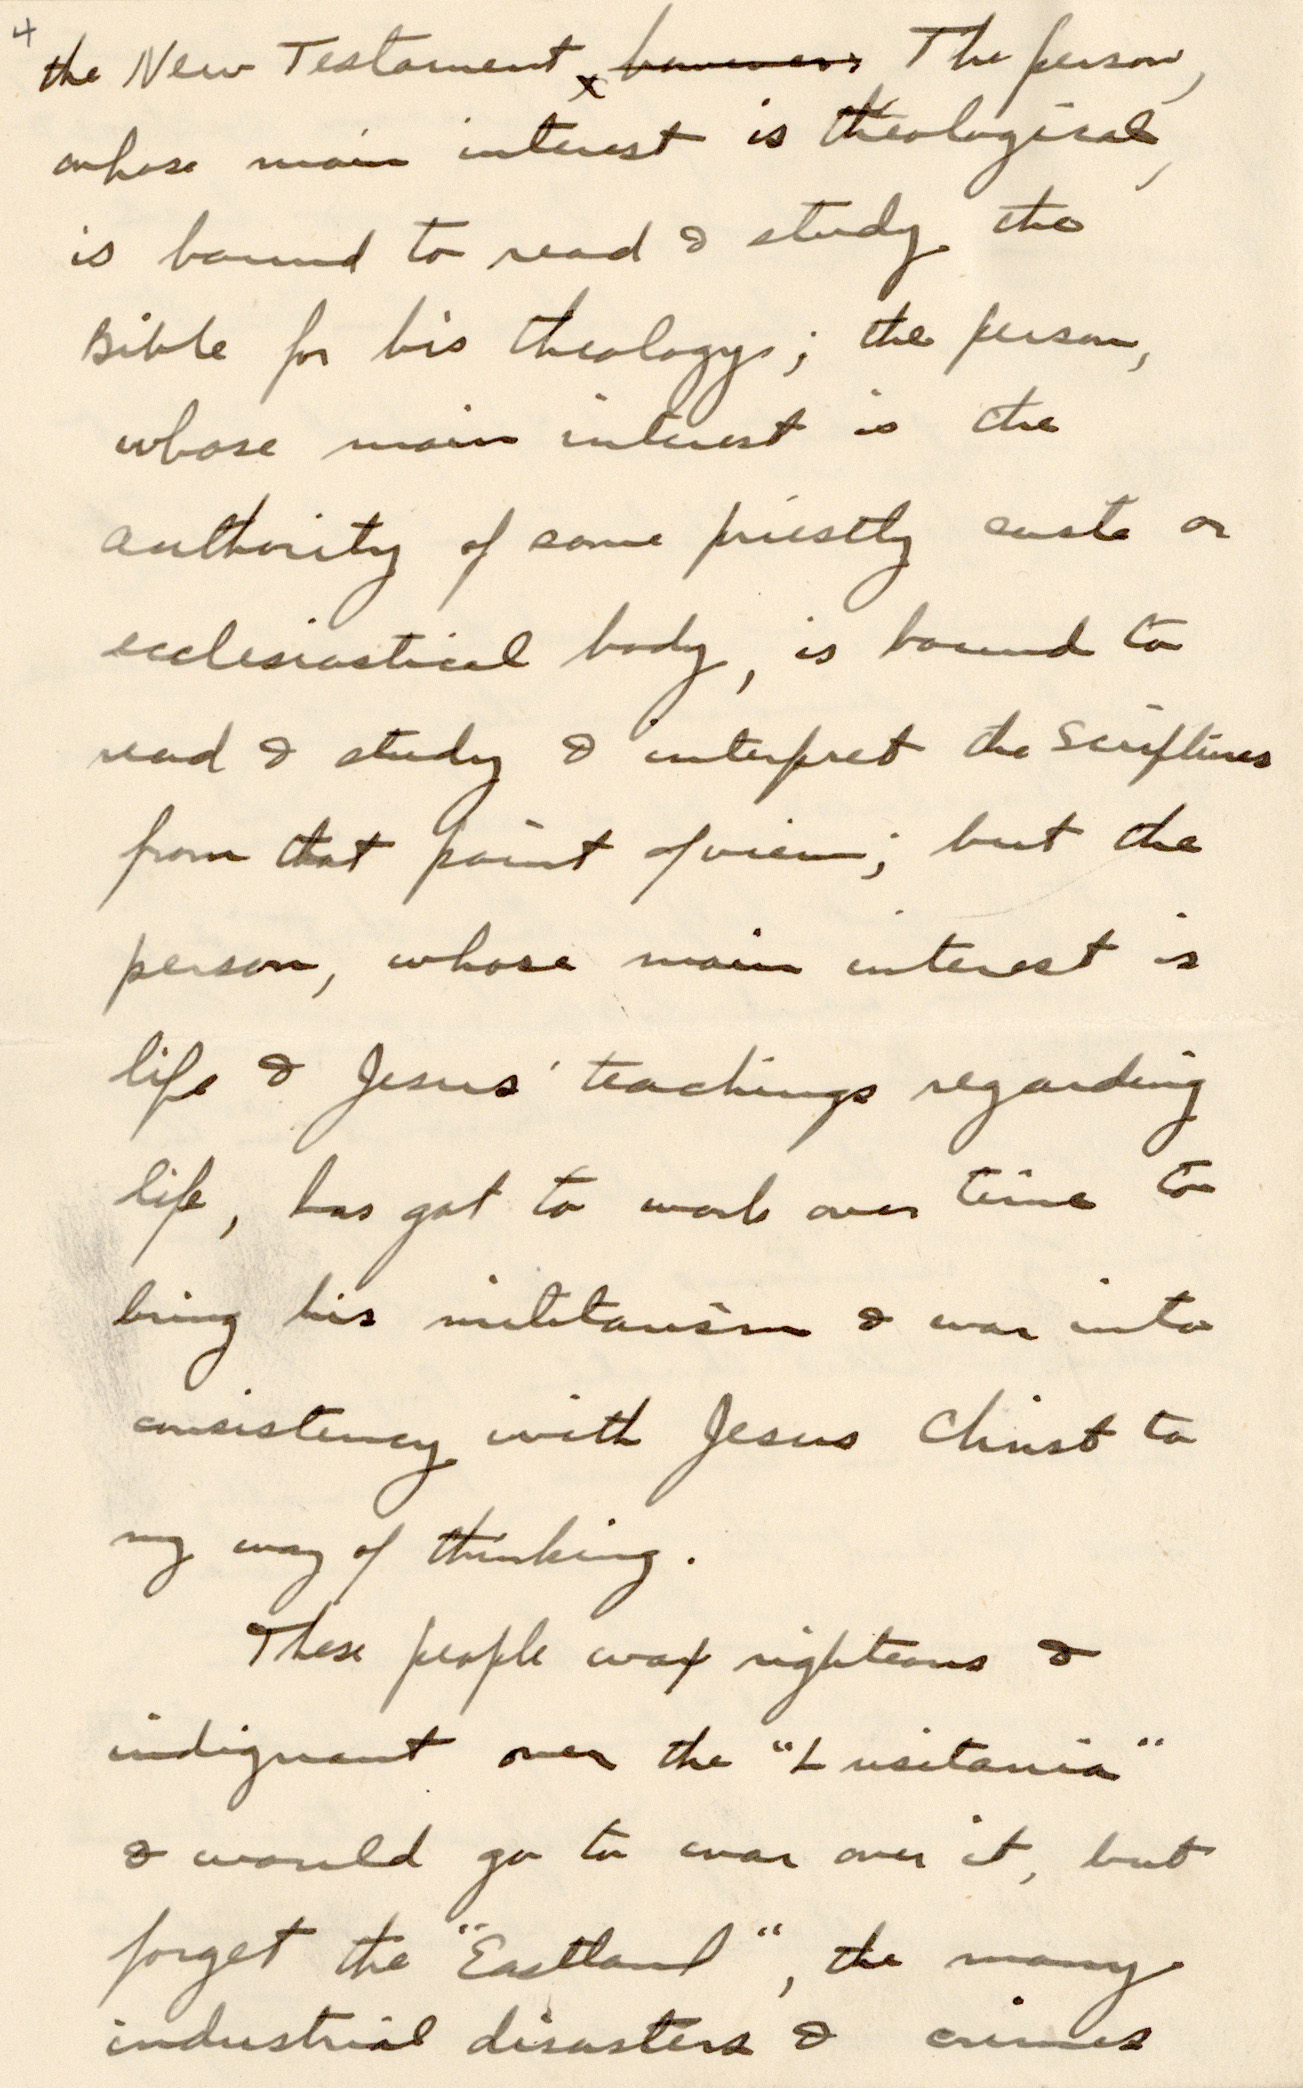 4
the New Testament x however The person,
whose main interest is theological,
is bound to read & study the
Bible for his theology; the person,
whose main interest is the
authority of some priestly caste or
ecclesiastical body, is bound to
read & study & interpret the Scriptures
from that point of view; but the
person, whose main interest is
life & Jesus' teachings regarding
life, has got to work over time to
bring his militarism & war into
consistency with Jesus Christ to
my way of thinking.
These people wax righteous &
indignant over the "Lusitania"
& would go to war over it, but
forget the "Eastland", the many
industrial disasters & crimes